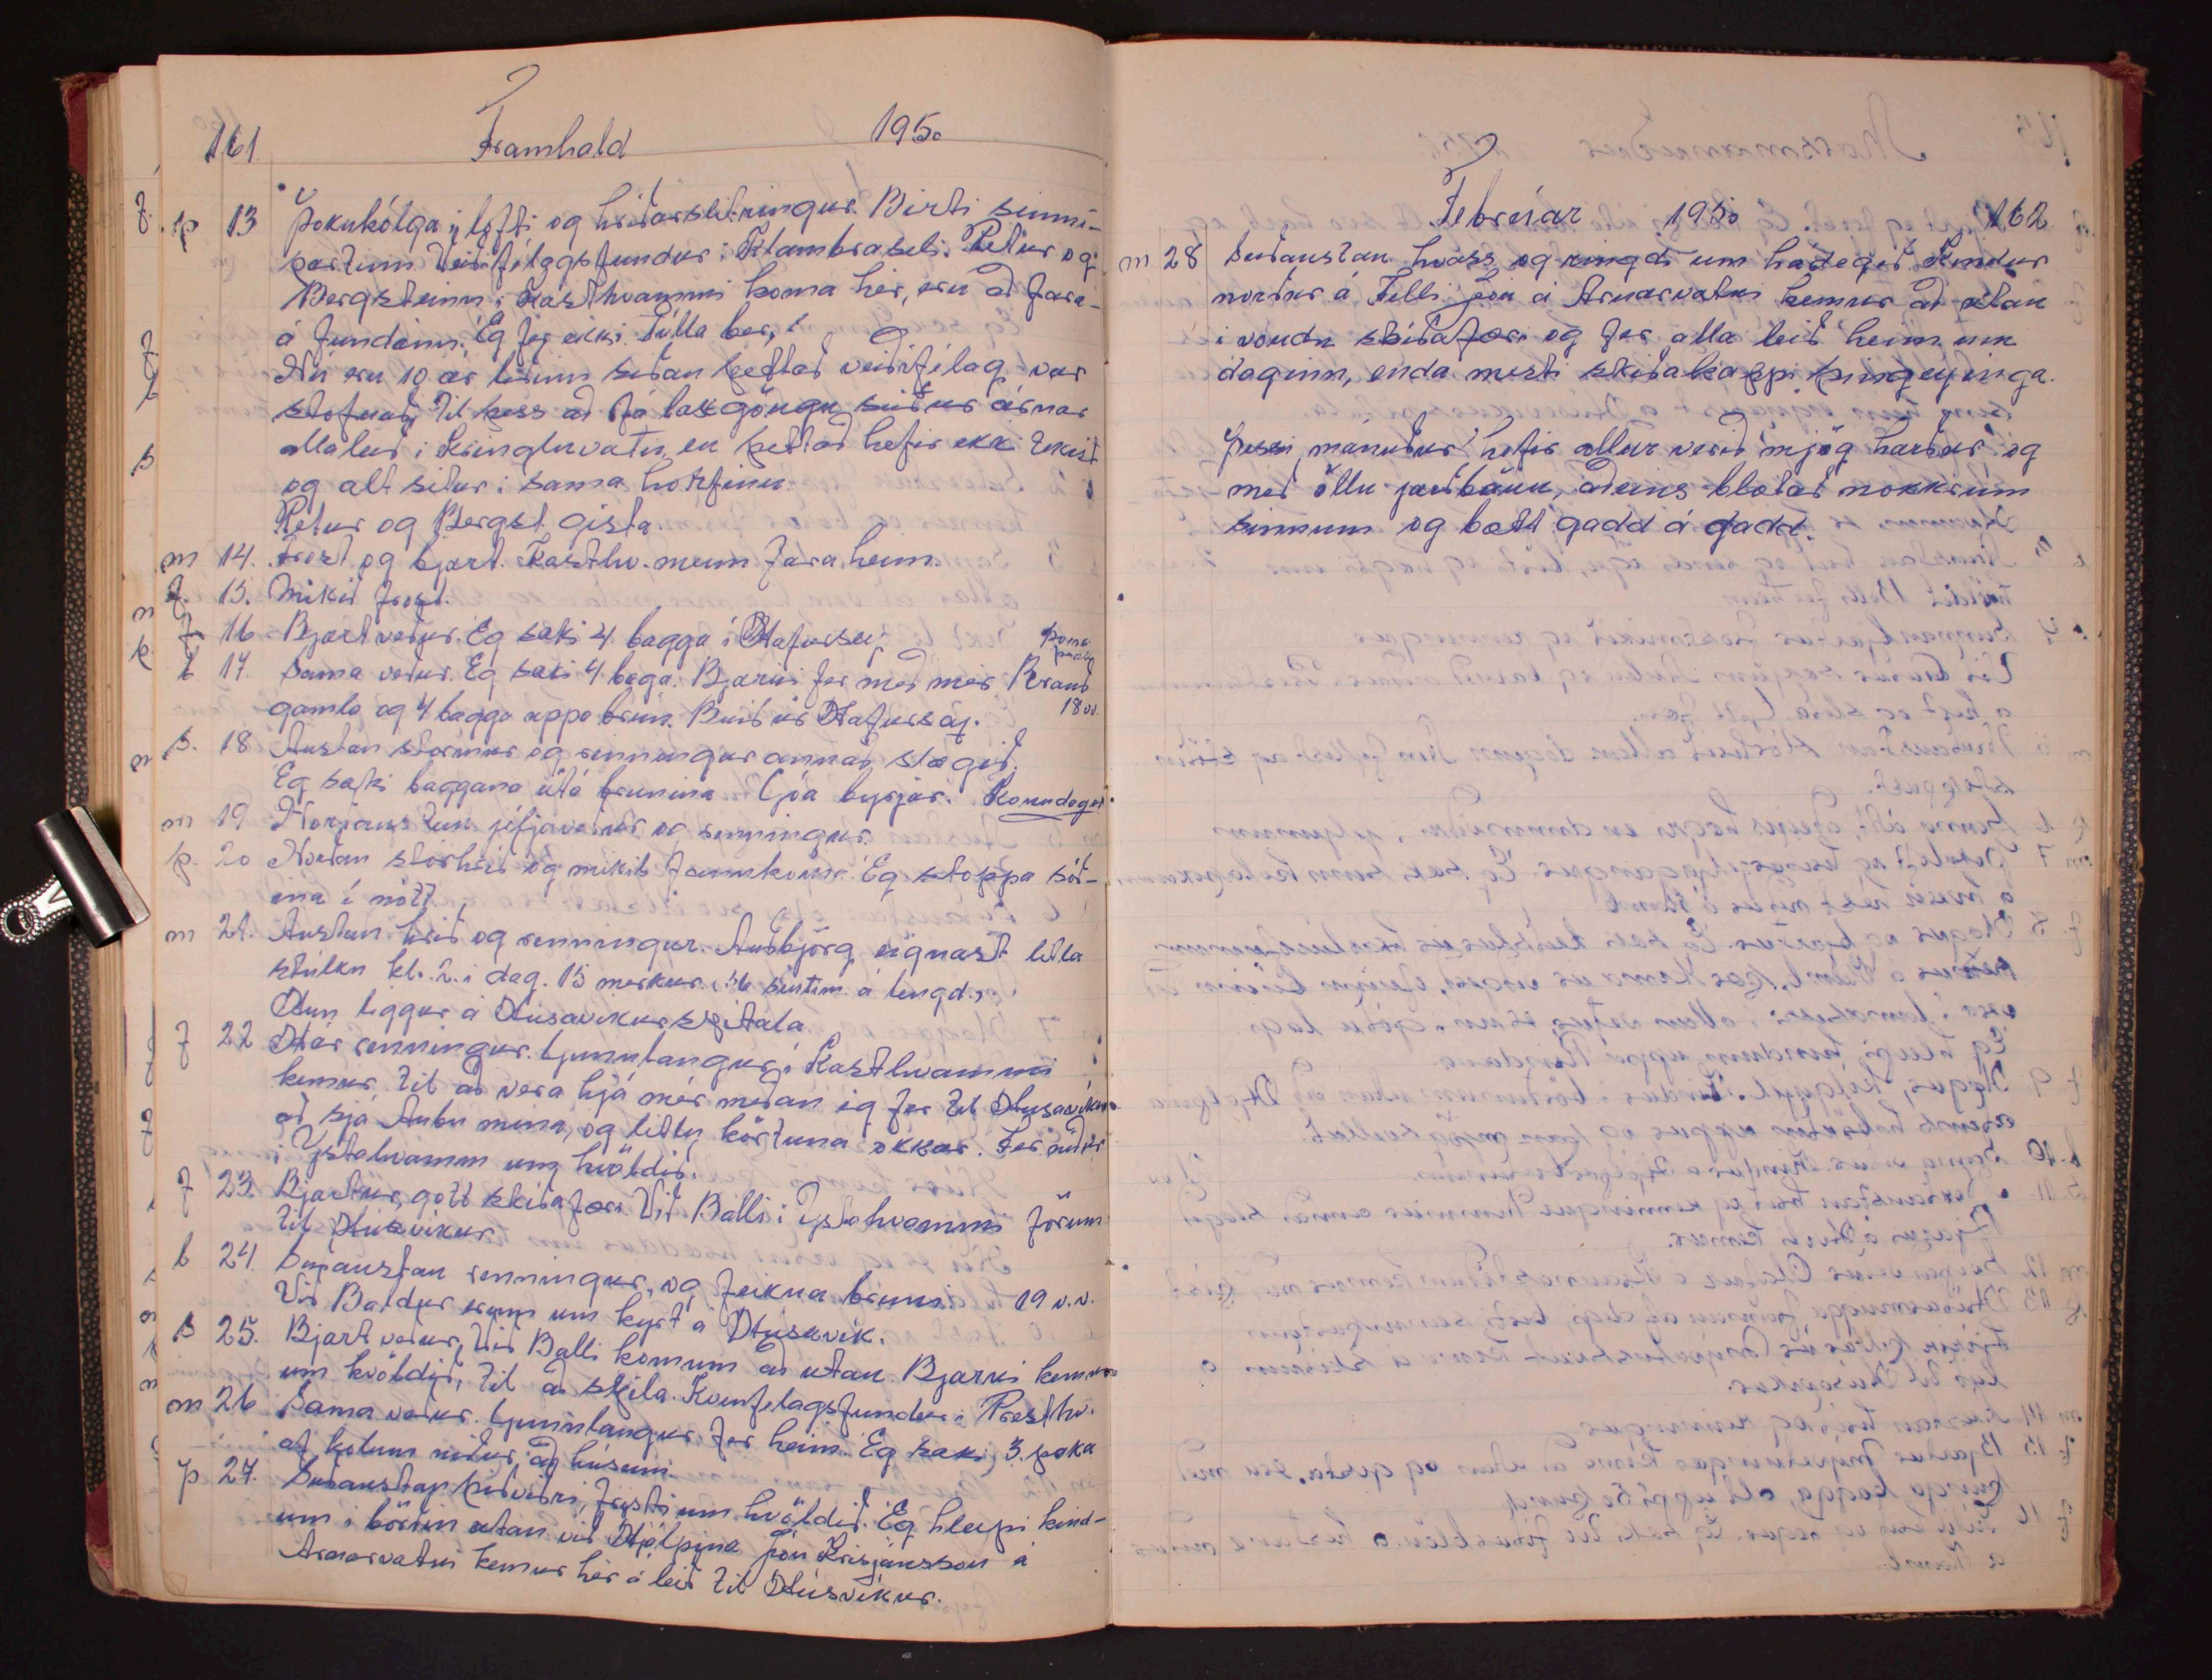 161 Framhald 1950
f. 13 Þokukólga í lofti og hríðarslitringur. Birti sinni-
partinn. Veiðifélagsfundur í Klambraseli. Petur og
Bergsteinn í Kasthvammi koma hér, eru að fara
á fundinn. Eg fer ekki.
Nú eru 10 ár liðinn siðan þettað veiðifélag var
stofnað, til þess að fá laxgöngu suður árnar
alla leið i Kringluvatn, en þettað hefir ekki tekist
og alt situr i sama horfinu.
Petur og Bergst gista.
m 14. Frost og bjart. Kasthv. menn fara heim.
f. 15. Mikið frost.
f 16 Bjart veður. Eg sæki 4 bagga í Hafursey. Þorra
þræll
f 17. Sama veður. Eg sæki 4 baga. Bjarni fer með mér Rauð
gamla og 4 bagga uppa brún. Buið úr Hafursey. 18 v.v.
s. 18 Austan stormur og renningur annað slagið.
Eg sæki baggana útá brunina Góa byrjar. Konudagur
m 19 Norðaustan ýfjaveður og renningur.
þ. 20 Norðan stórhríð og mikið fannkoma. Eg stoppa sót-
ina í nótt.
m 21. Austan hríð og renningur. Auðbjörg eignast litla
stúlku kl. 2. i dag. 15 merkur. 56 sentim. á lengd.
Hun liggur á Húsavikurspitala
f 22 Hár renningur. Gunnlaugur í Kasthvammi
kemur til að vera hjá mér meðan eg fer til Húsavíkur
að sjá Auðu mina, og litlu körtuna okkar. Fer niður
í Ystahvamm um kvöldið.
f 23. Bjartur, gott skíðafæri. Við Balli i Ystahvammi förum
til Húsavikur
l 24. Suðaustan renningur, og feikna bruni. 19 v.v.
Við Baldur erum um kyrt á Húsavík.
s 25. Bjart veður, við Balli komum að utan. Bjarni kemur
um kvöldið, til að spila. Kvenfelagsfundur i Presthv.
m 26 Sama veður. Gunnlaugur fer heim. Eg sæki 3. poka
af kolum niður að húsum.
þ 27. Suðaustan þiðviðri, frysti um kvöldið. Eg hleypi kind-
um i börðin utan við Hjálpina Jón Kristjánsson á
Arnarvatni kemur hér á leið til Húsvíkur.
Febrúar 1950 162
m 28 Suðaustan hvass og ringdi um hádegið. Kindur
norður á Felli. Jón á Arnarvatni kemur að utan
i vondu skiðafæri og fer alla leið heim um
daginn, enda mesti skiðakappi þingeyinga.
Þessi mánuður hefir allur verið mjög harður og
með öllu jarðbönn, aðeins blotað nokkrum
sinnum og bætt gadd á gadd.